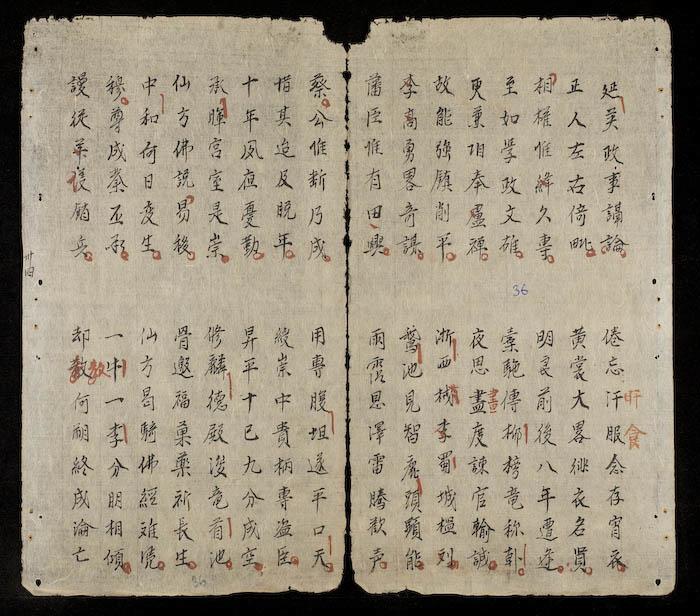 延英政事講論
倦忘汗服念存宵衣
旰食
正人左右倚毗
黄裳大畧緋衣名賢
相權惟絳久專
明良前後八年遭逢
至如學政文雄
橐駞傳柳榜竜称韓
更兼用奉盧禪
夜思盡度諫官輸誠
畫
故能強鎮削平
浙西械李蜀城檻刘
李高勇畧奇謀
鵞池見智鹿頭顕能
藩臣惟有田興
雨霑恩澤雷騰歡声
蔡公惟断乃成
用專腹坦遂平口天
惜其迨及晚年
綬崇中貴柄專盗臣
十年夙夜憂勤
昇平十已九分成空
承暉宮室是崇
修麟德殿浚竜首池
仙方佛説易移
骨邀福菓藥祈長生
中和何日受生
仙方曷騎佛經难憑
穆尊成業丕承
一牛一李分朋相傾
謾從議銷兵
却教何嗣終成淪亡
教
卅四
36
36